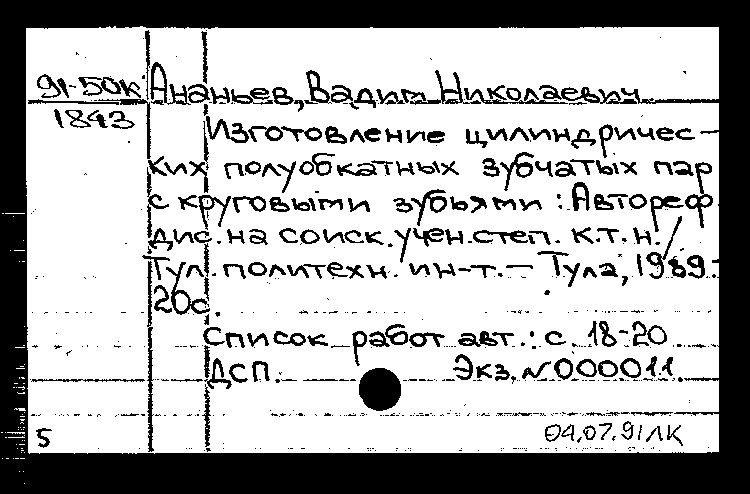 91-50к Ананьев, Вадим Николаевич
1843
Изготовление цилиндричес-
ких полуобкатных зубчатых пар
с круговыми зубьями : Автореф.
дис. на соиск. учен. степ. к.т.н. /
Тул. политехн. ин-т. – Тула, 1989.-
20с.
Список работ авт.: с. 18-20
ДСП. Экз. №000011.
5 04.07.91ЛК